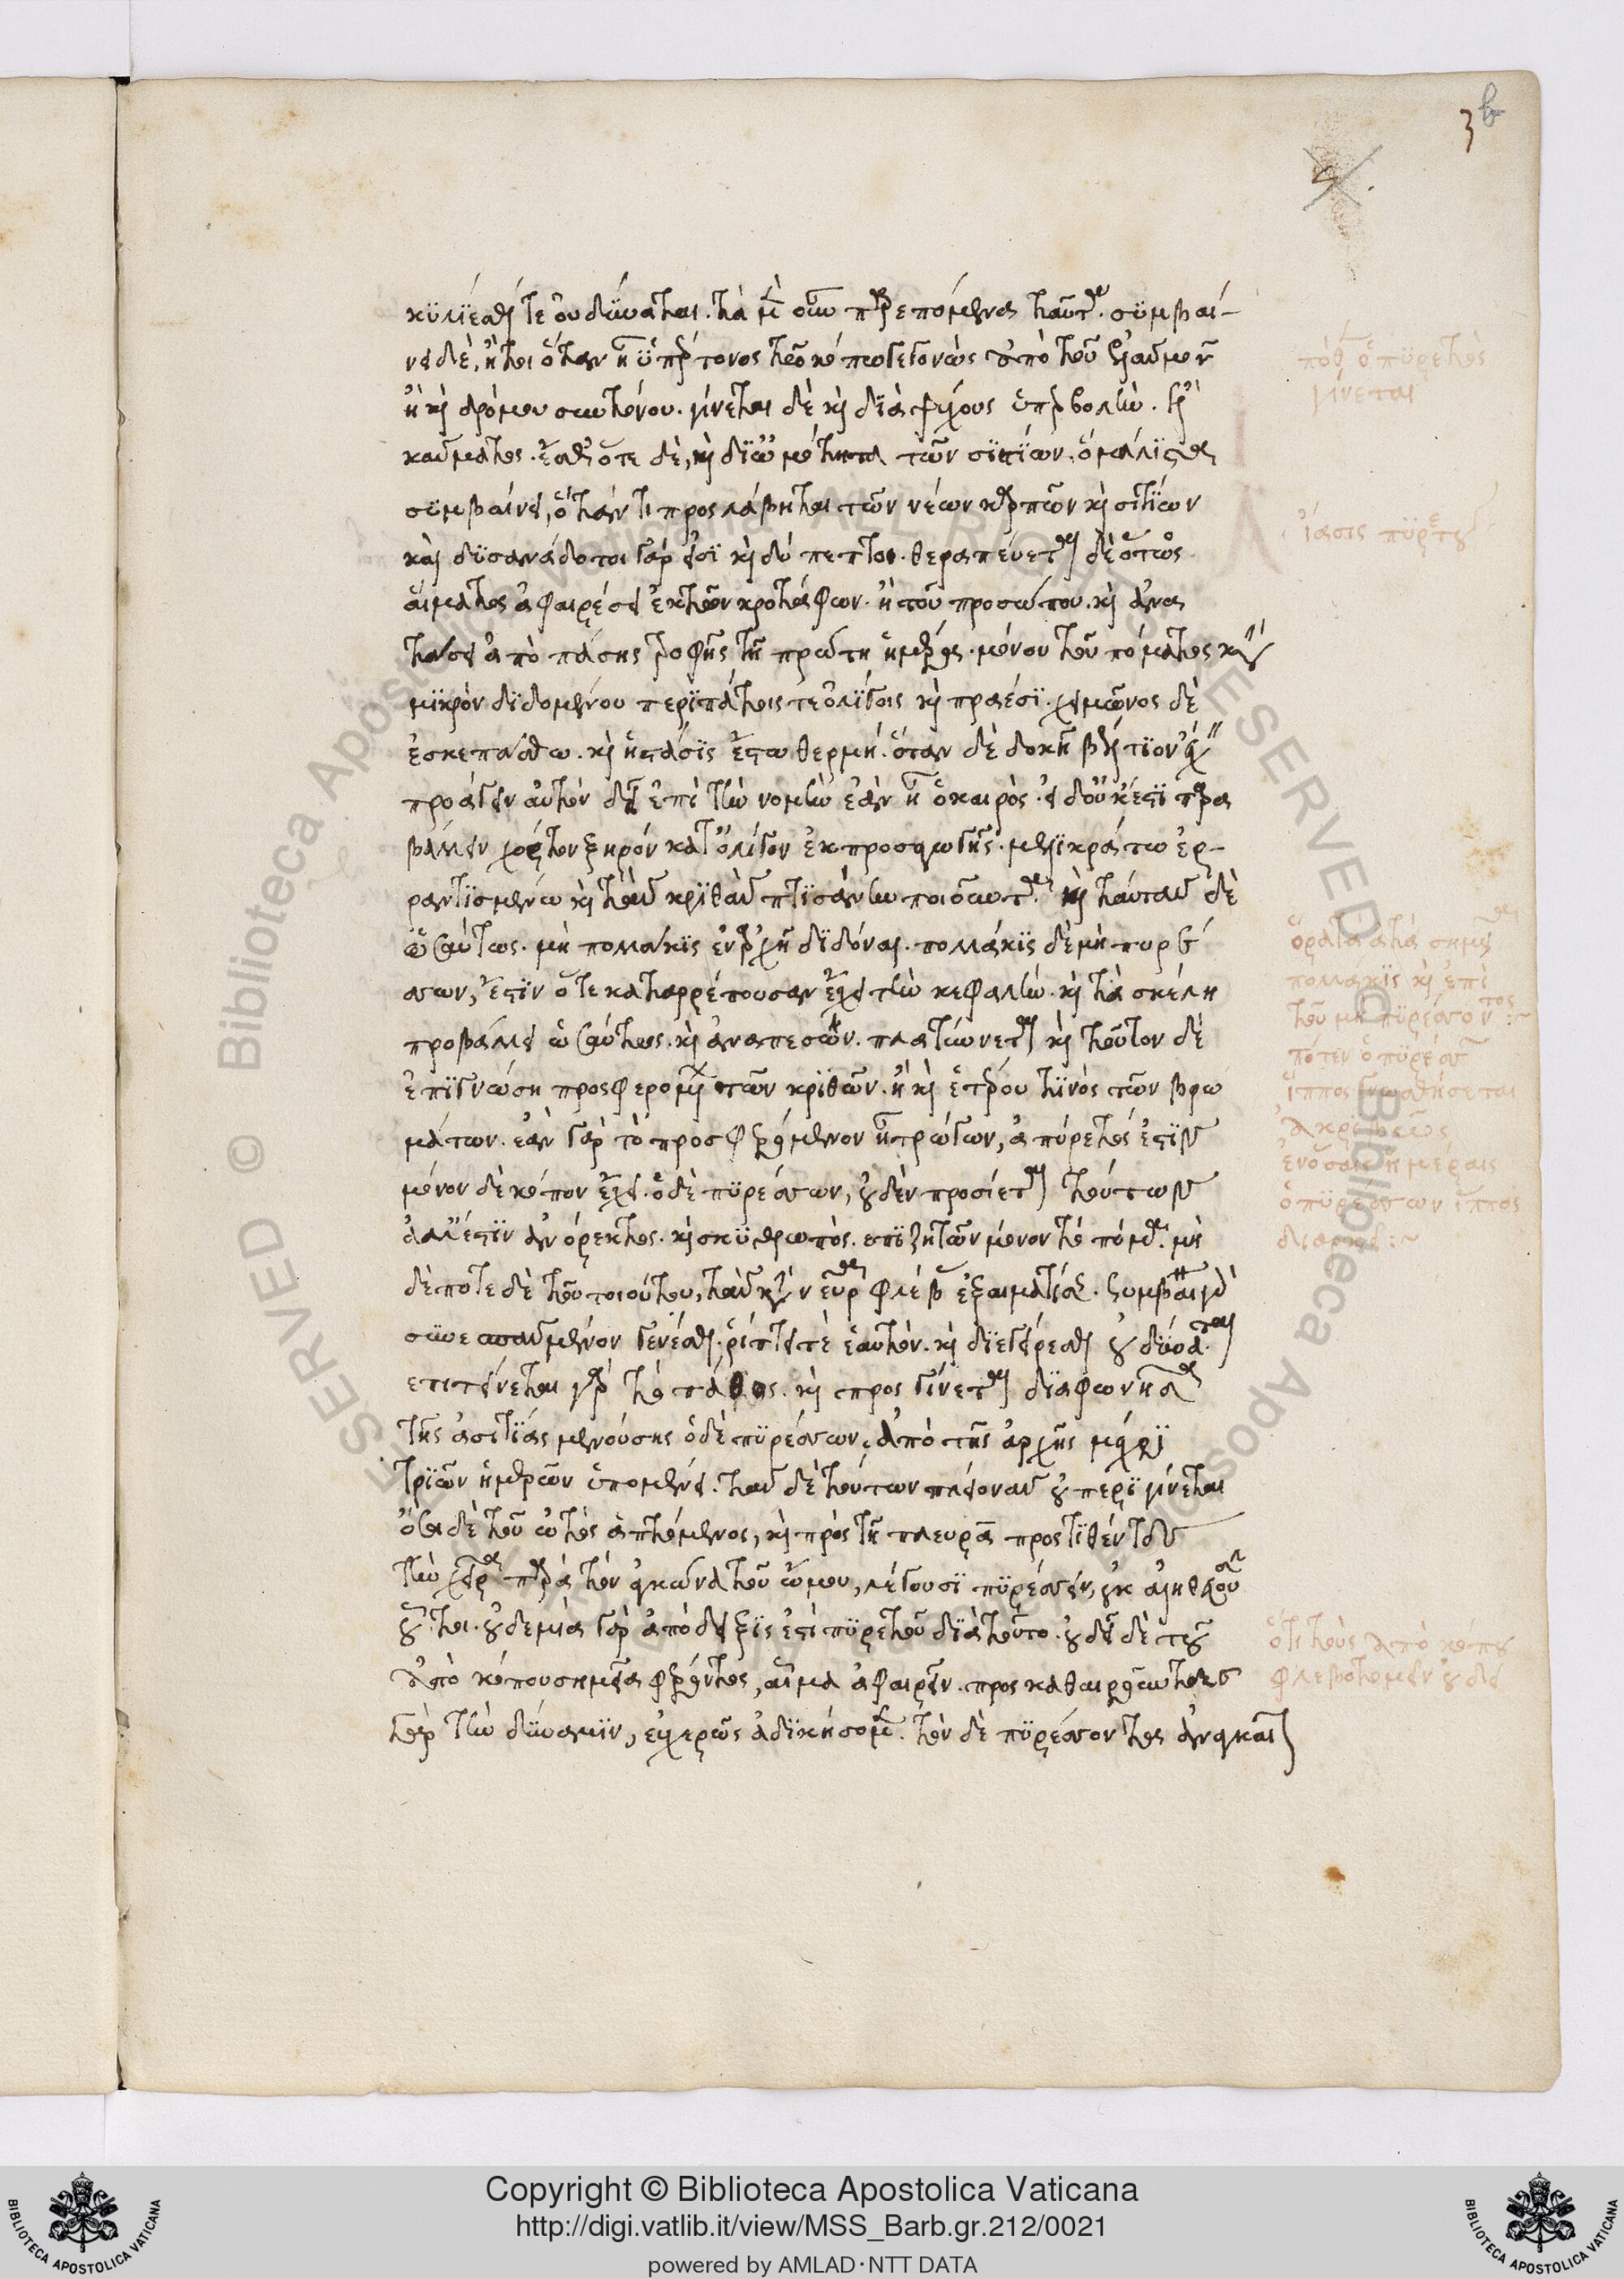 3 b
κϋλίεσθαί τε οὐ δύναται. τὰ μὲν οὖν παρεπόμενα ταῦτα. συμβαί-
νει δὲ, ἤτοι ὅταν ἢ ὑπέρτονος τῶ κόπω γεγονὼς ὑπὸ τοῦ
ἢ καὶ δρόμου συντόνου. γίνεται δὲ καὶ διὰ ψύχους ὑπερβολὴν. καὶ
καύματος. ἔσθ' ὅτε δὲ, καὶ δι' ὠμότητα τῶν σιτίων. ὃ μάλιστα
συμβαίνει, ὅταν τι προσλάβηται τῶν νέων καρπῶν καὶ σιτίων
καὶ δυσανάδοτοι γάρ εἰσι καὶ δύπεπτοι. θεραπεύεται δὲ οὕτως
αἵματος ἀφαιρέσει ἐκ τῶν κροτάφων. ἢ τοῦ προσώπου. καὶ ἀνα
παύσει ἀπὸ πάσης τροφῆς τῇ πρώτη ἡμέρας. μόνου τοῦ πόματος
μικρὸν διδομένου περιπάτοις τε ὀλίγοις καὶ πραέσι. χειμῶνος δὲ
ἐσκεπάσθω. καὶ ἡ στάσις ἔστω θερμή. ὅταν δὲ δοκῇ βέλτιον ἔχειν
προάγειν αὐτὸν δεῖ ἐπὶ τὴν νομὴν ἐὰν ἦ ὁ καιρὸς. εἰ δ' οὐκ ἔστι παρα
βάλλειν χόρτον ξηρὸν κατ' ὀλίγον ἐκ προσαγωγῆς. μελικράτω ἐρ-
ραντισμένω καὶ τὰν κριθὰν πτισάνην ποιοῦντα. καὶ ταύταν δὲ
ὡσαύτως. μὴ πολλάκις ἐν ἀρχῇ διδόναι. πολλάκις δὲ μὴ πυρέσ
σων, ἔστιν ὅτε καταρρέπουσαν ἔχει τὴν κεφαλὴν. καὶ τὰ σκέλη
προβάλλει ὡσαύτως. καὶ ἀναπεσὼν. πλατύνεται καὶ τοῦτον δὲ
ἐπιγνώση προσφερομένων τῶν κριθῶν. ἢ καὶ ἑτέρου τινὸς τῶν βρω
μάτων. ἐὰν γὰρ τὸ προσφερόμενον ἦ τρώγων, ἀπύρετός ἐστιν
μόνον δὲ κόπον ἔχει. ὁ δὲ πυρέσσων, οὐδὲν προσίεται τούτων
ἀλλ' ἔστιν ἀνόρεκτος. καὶ σκυθρωπός. ἐπιζητῶν μόνον τὸ πόμα. μὴ
δέποτε δὲ τοῦ τοιούτου, τὰν εὐρ φλέβα ἐξαιμάτιζε. συμβαίνει γὰρ
συνεσπασμένον γενέσθαι. ῥίπτει τε ἑαυτόν. καὶ διεγείρεσθαι οὐ δύναται
ἐπιτείνεται γὰρ τὸ πάθος. καὶ προσγίνεται διαφωνῆσαι
τῆς ἀσιτίας μενούσης ὁ δὲ πυρέσσων, ἀπὸ τῆς ἀρχῆς μέχρι
τριῶν ἡμερῶν ὑπομένει. τὰν δὲ τούτων πλείοναν οὐ περιγίνεται
ὅσοι δὲ τοῦ ὠτὸς ἁπτόμενος, καὶ πρὸς τῇ πλευρᾷ προστιθέντων
τὴν χεῖρα παρὰ τὸν ἀγκῶνα τοῦ ὤμου, λέγουσι πυρέσσειν, οὐκ
οὗτοι. οὐδεμία γὰρ ἀπόδειξίς ἐστι πυρετοῦ διὰ τοῦτο. οὐ δεῖ δὲ τοῦ
ἀπὸ κόπου σημεῖα φέροντος, αἷμα ἀφαιρεῖν. προσκαθαιροῦντες
γὰρ τὴν δύναμιν, εὐχερῶς ἀδικήσομεν. τὸν δὲ πυρέσσοντος ἀναγκαῖ
πόθεν ὁ πυρετὸς
γίνεται
ἴασις πυρετοῦ
ὅρα ταῦτα τὰ σημεῖα
πολλάκις καὶ ἐπὶ
τοῦ μὴ πυρέσσοντος :~
πότεν ὁ πυρέσσων
ἵππος γνωσθήσεται
ἀκριβῶς
ἐν ὅσαις ἡμέραις
ὁ πυρέσσων ἵππος
διαρκεῖ :~
ὅτι τοὺς ἀπὸ κόπου
φλεβοτομεῖν οὐ δεῖ
Copyright © Biblioteca Apostolica Vaticana
http://digi.vatlib.it/view/MSS_Barb.gr.212/0021
powered by AMLAD·NTT DATA
BIBLIOTECA APOSTOLICA VATICANA
BIBLIOTECA APOSTOLICA VATICANA